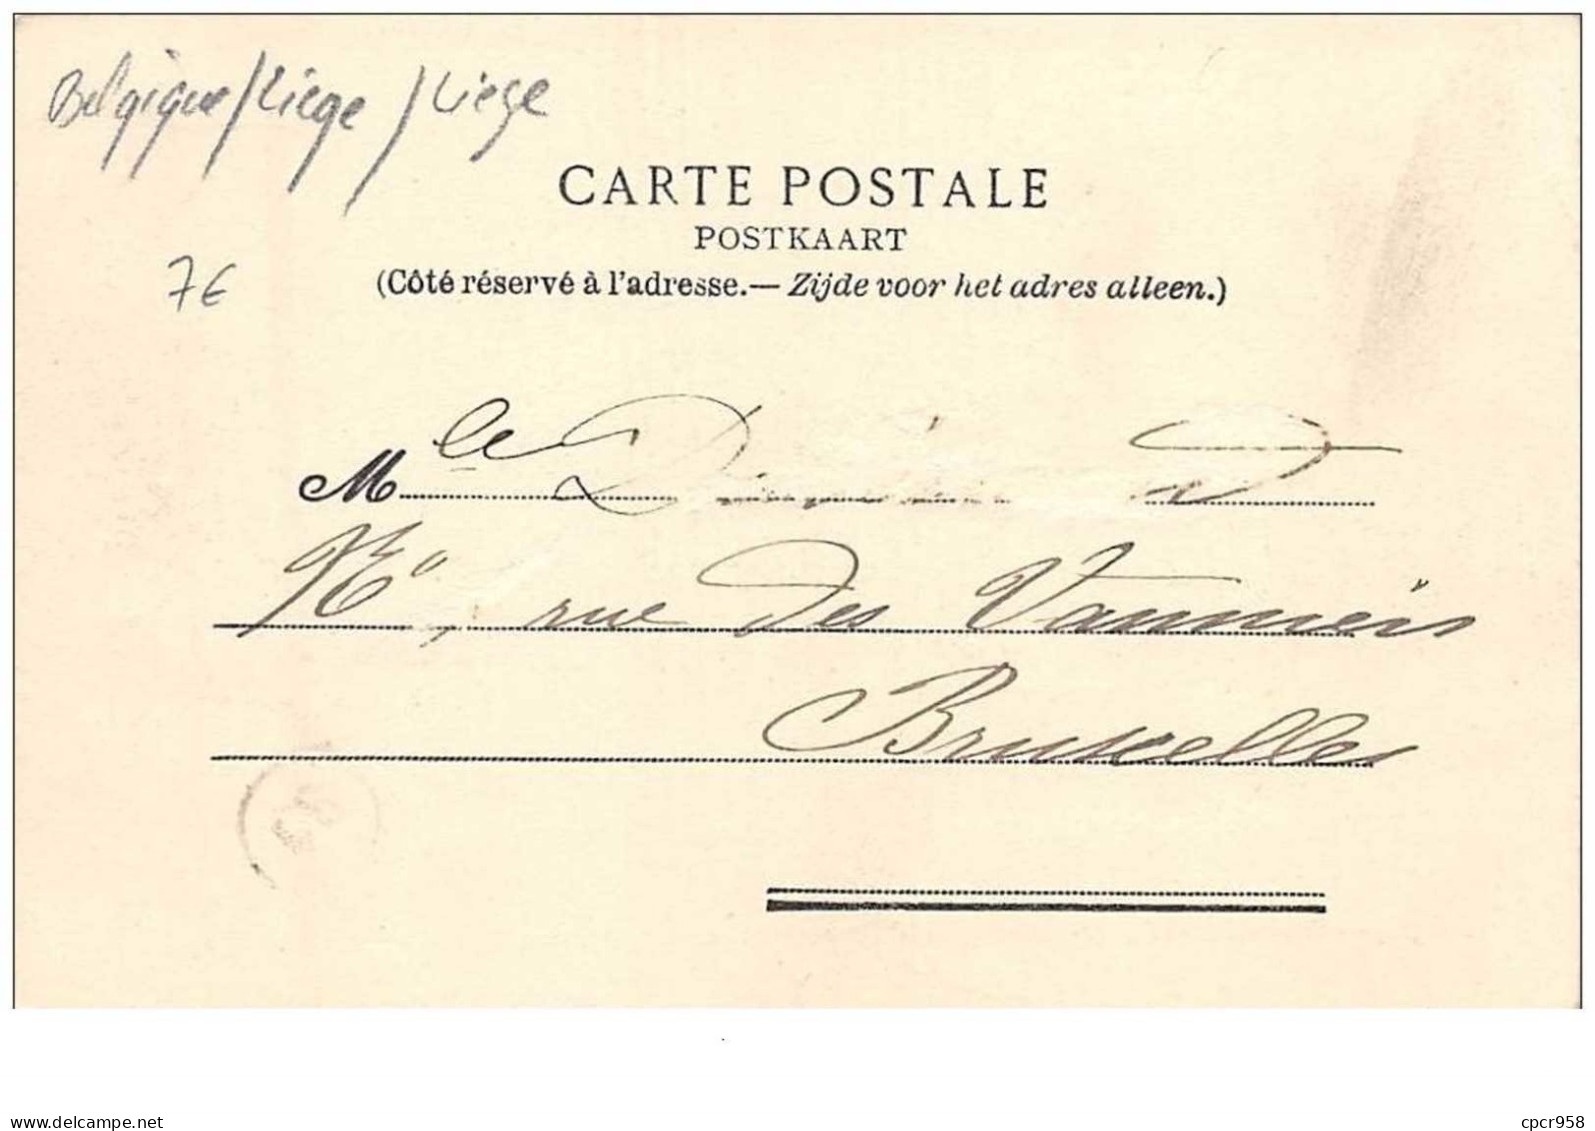 Belgique/Liège/Liège
CARTE POSTALE
POSTKAART
7€
(Côté réservé à l'adresse.— Zijde voor het adres alleen.)
Mle D
rue des
Bruxelles
www.delcampe.net
cpcr958